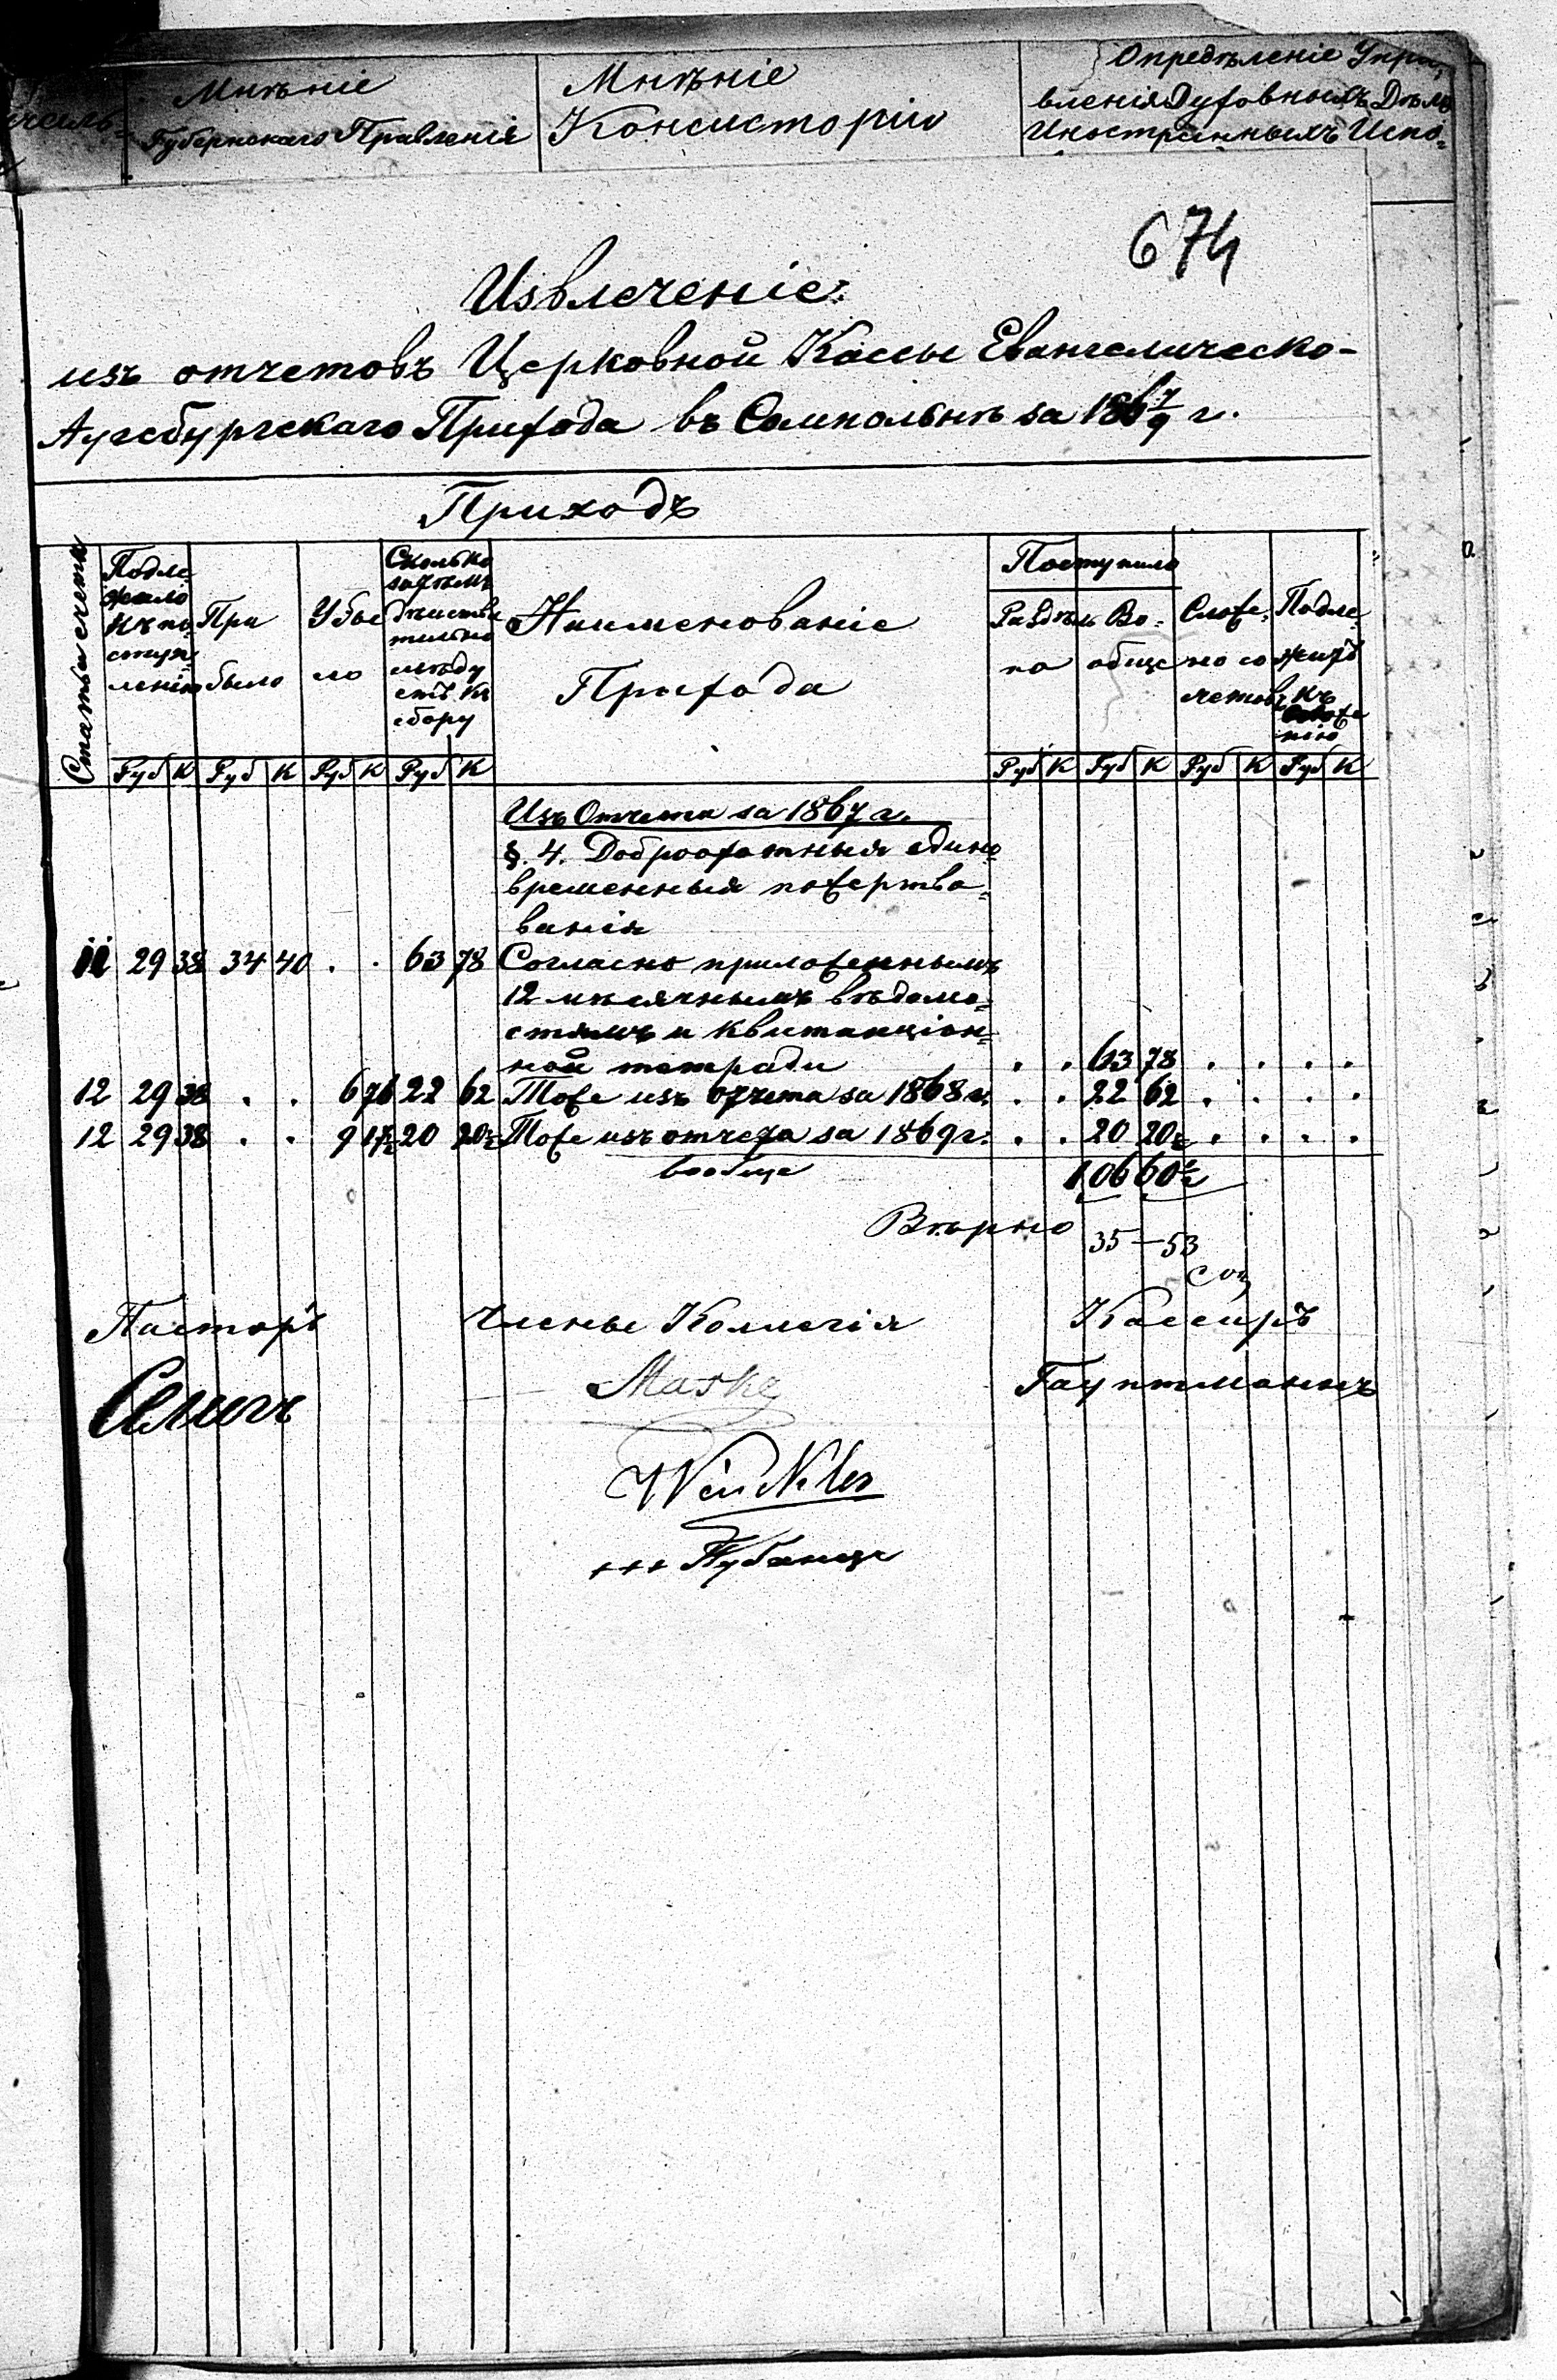 Мнѣніе
Губернскаго Правленія
Мнѣніе
Консисторіи
Опредѣленіе Упра-
вленія Духовныхъ Дѣлъ
Иностранныхъ Испо-
674
Извлеченіе
изъ отчетовъ Церковной Кассы Евангелическо-
Аугсбургскаго Прихода въ Сомпольнѣ за 186 7/9 г.
Приходъ
Статьи счета
Подле-
жало
къ по-
ступ-
ленію
При
было
Убы
ло
Сколько
затѣмъ
дѣйстви
тельно
слѣду
етъ къ
сбору
Наименованіе
Прихода
Поступило
Раздѣль
но
Во-
обще
Сложе-
но со
счетовъ
Подле-
житъ
къ
сложе
нію
Руб К Руб К Руб К Руб К Руб К Руб К Руб К Руб К
Изъ Отчета за 1867 г.
§. 4. Доброохотныя едино
временныя пожертво-
ванія
11 29 38 34 40 . . 63 78 Согласно приложеннымъ
12 мѣсячнымъ вѣдомо-
стямъ и квитанціон-
ной тетради . . 63 78 . . . .
12 29 38 . . 6 76 22 62 Тоже изъ отчета за 1868 г. . . 22 62 . . . .
12 29 38 . . 9 17½ 20 20½ Тоже изъ отчета за 1869 г. . . 20 20½ . . . .
вообще 106 60½
Вѣрно
35—53
Пасторъ
Члены Коллегія
Кассиръ
Maske
Гауптманнъ
Winckler
+++